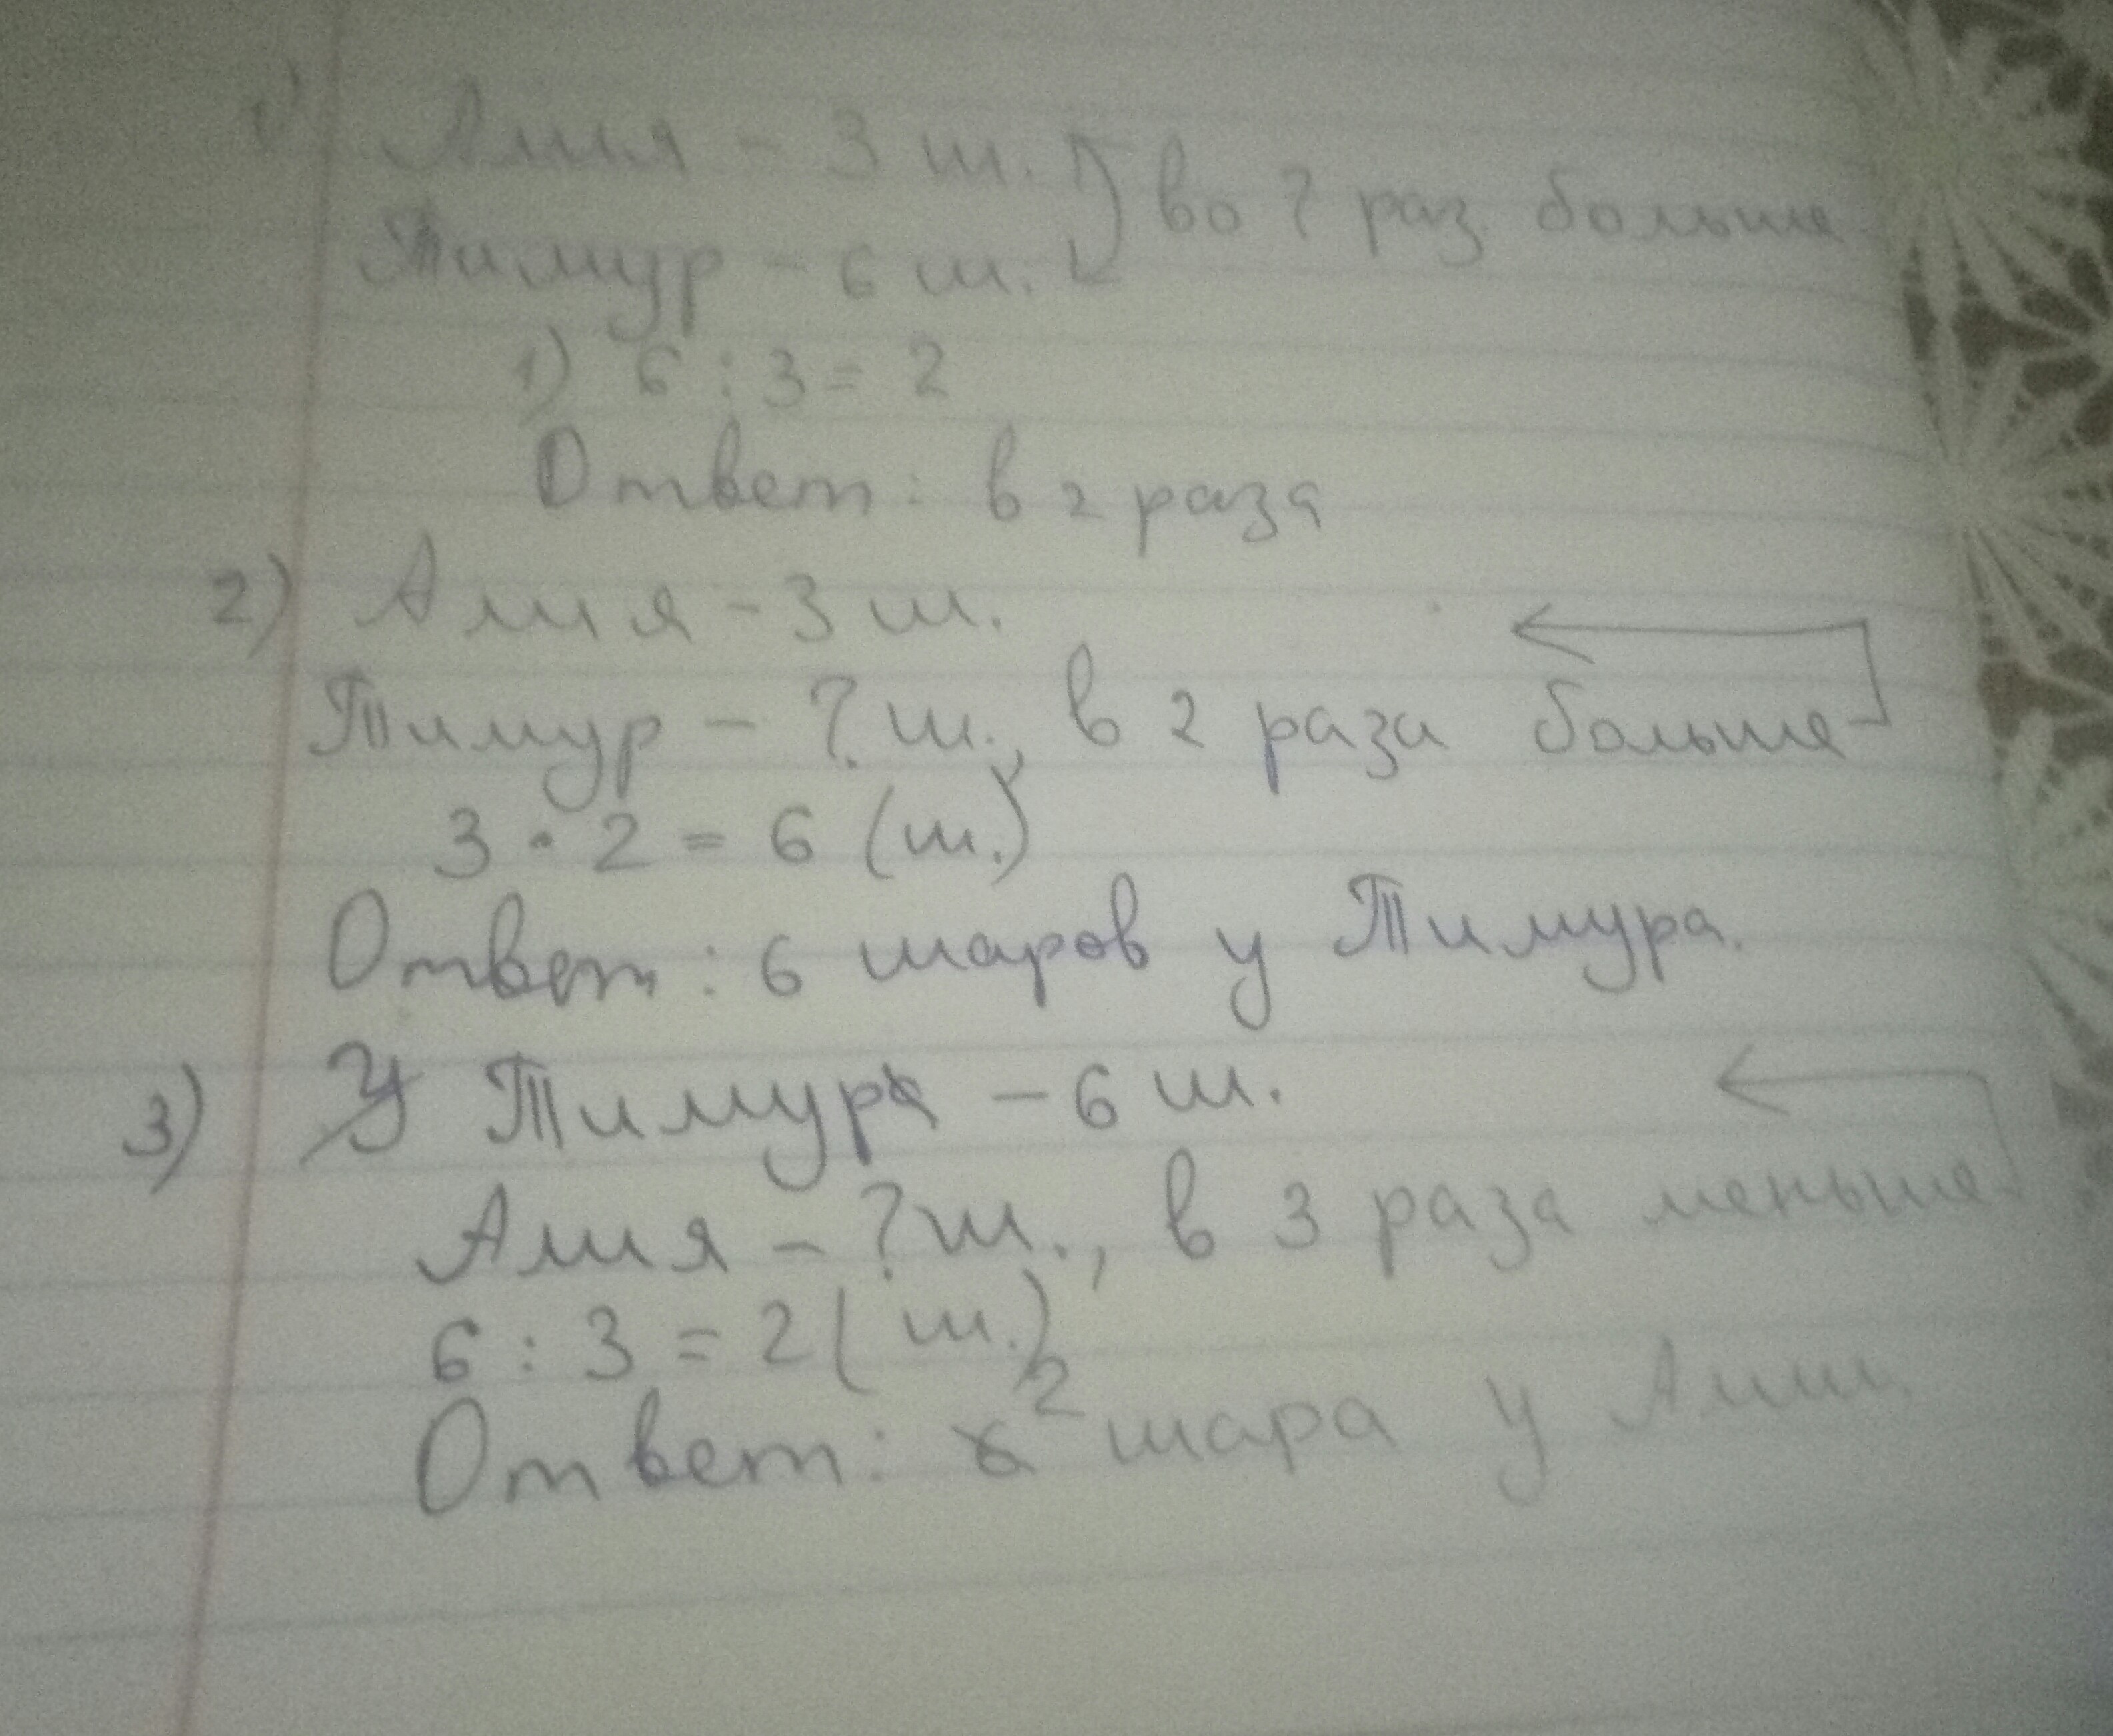 1) Алия - 3 ш. во ? раз больше
Тимур - 6 ш.
1) 6 : 3 = 2
Ответ: в 2 раза
2) Алия - 3 ш.
Тимур - ? ш., в 2 раза больше
3 · 2 = 6 (ш.)
Ответ: 6 шаров у Тимура.
3) У Тимура - 6 ш.
Алия - ? ш., в 3 раза меньше
6 : 3 = 2 (ш.)
Ответ: 2 шара у Алии.